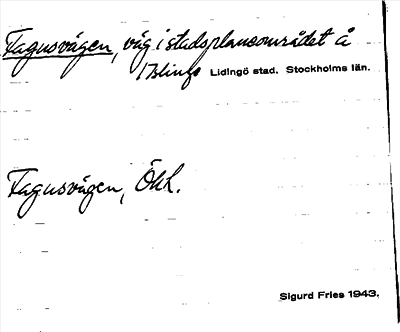 Fagusvägen, väg i stadsplaneområdet å
Lidingö stad. Stockholms län.
Fagusvägen, Ökk.
Sigurd Fries 1943.